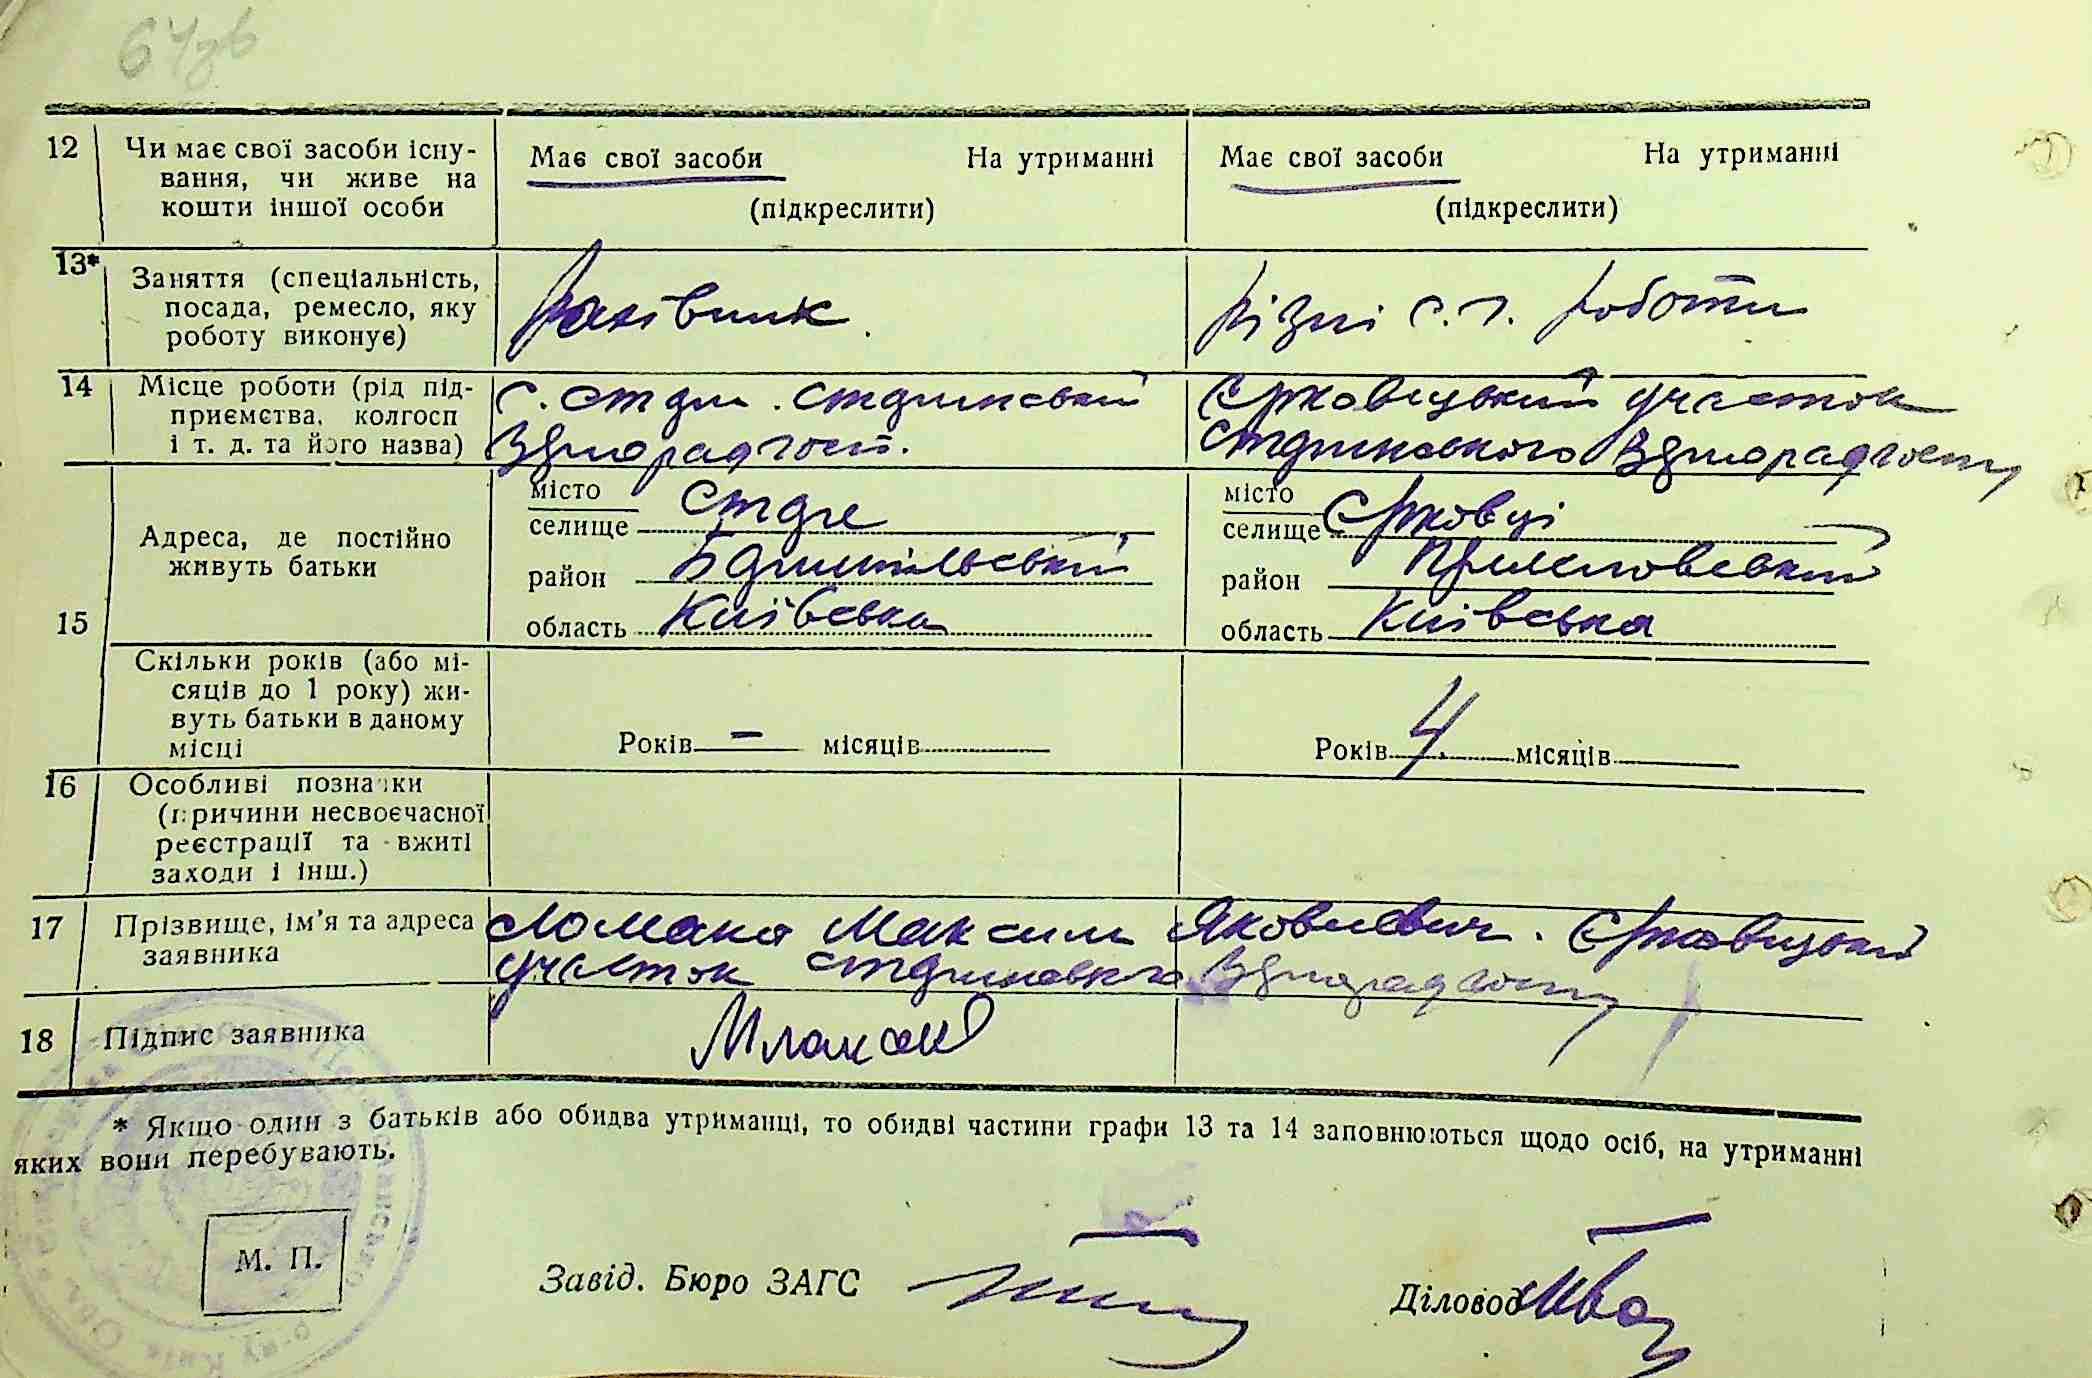 12 Чи має свої засоби існу- Має свої засоби На утриманні Має свої засоби На утриманні
вання, чи живе на
кошти іншої особи (підкреслити) (підкреслити)
13* Заняття (спеціальність,
посада, ремесло, яку різні с. г. роботи
роботу виконує)
14 Місце роботи (рід під- Єрковецький участок
приємства, колгосп
і т. д. та його назва)
місто місто
селище селище Єрковці
Адреса, де постійно
живуть батьки
район Бориспільський район
15 область Київська область Київська
Скільки років (або мі-
сяців до 1 року) жи-
вуть батьки в даному
місці Років - місяців Років 4 місяців
16 Особливі познаки
(причини несвоєчасної
реєстрації та вжиті
заходи і інш.)
17 Прізвище, ім'я та адреса Ломака Максим Яковлевич. Єрковецький
заявника участок
18 Підпис заявника
* Якщо один з батьків або обидва утриманці, то обидві частини графи 13 та 14 заповнюються щодо осіб, на утриманні
яких вони перебувають.
М. П.
Завід. Бюро ЗАГС Діловод